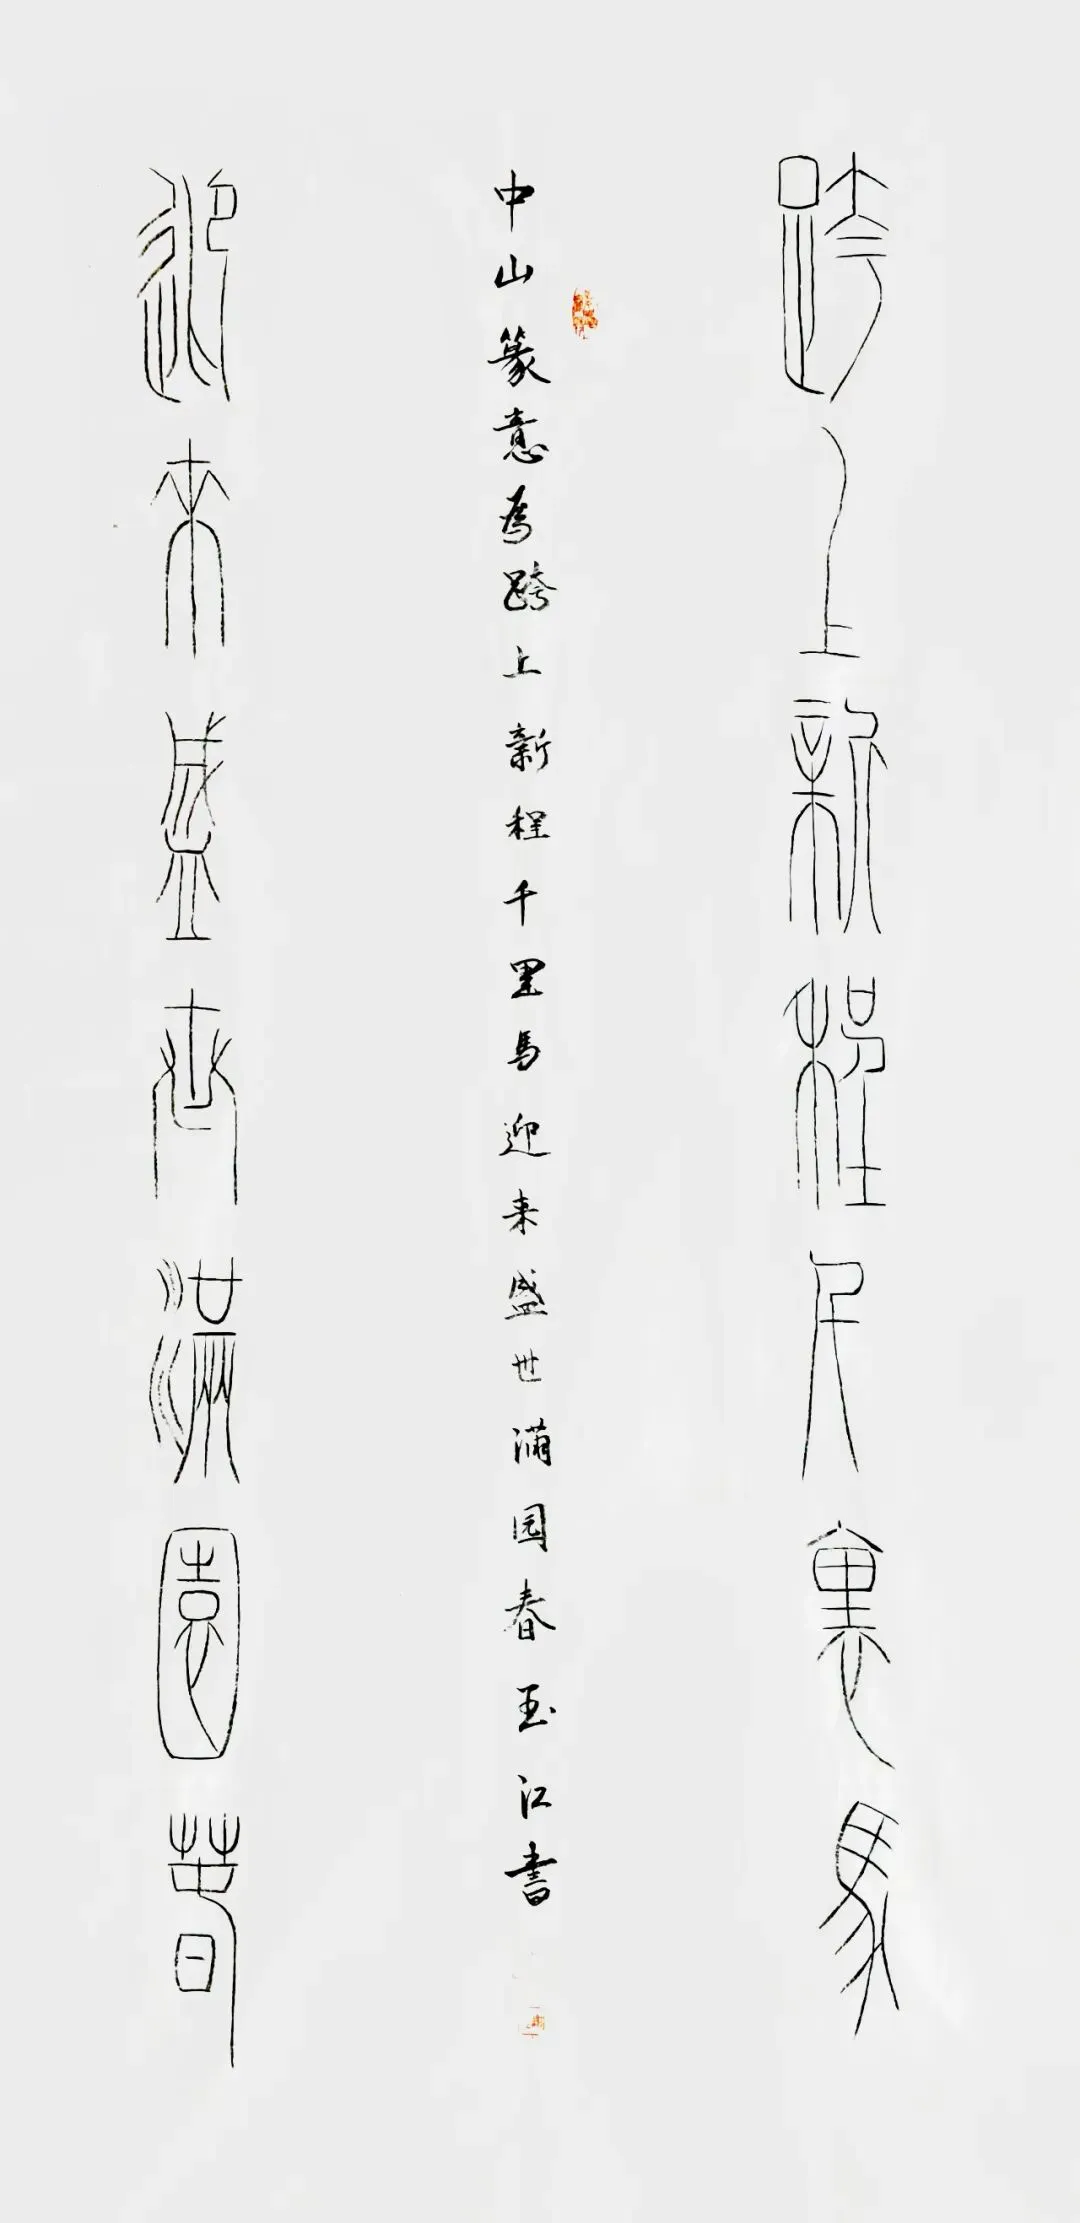 跨上新程千里馬
中山篆意為跨上新程千里馬迎来盛世满园春玉江書
迎來盛世滿園春